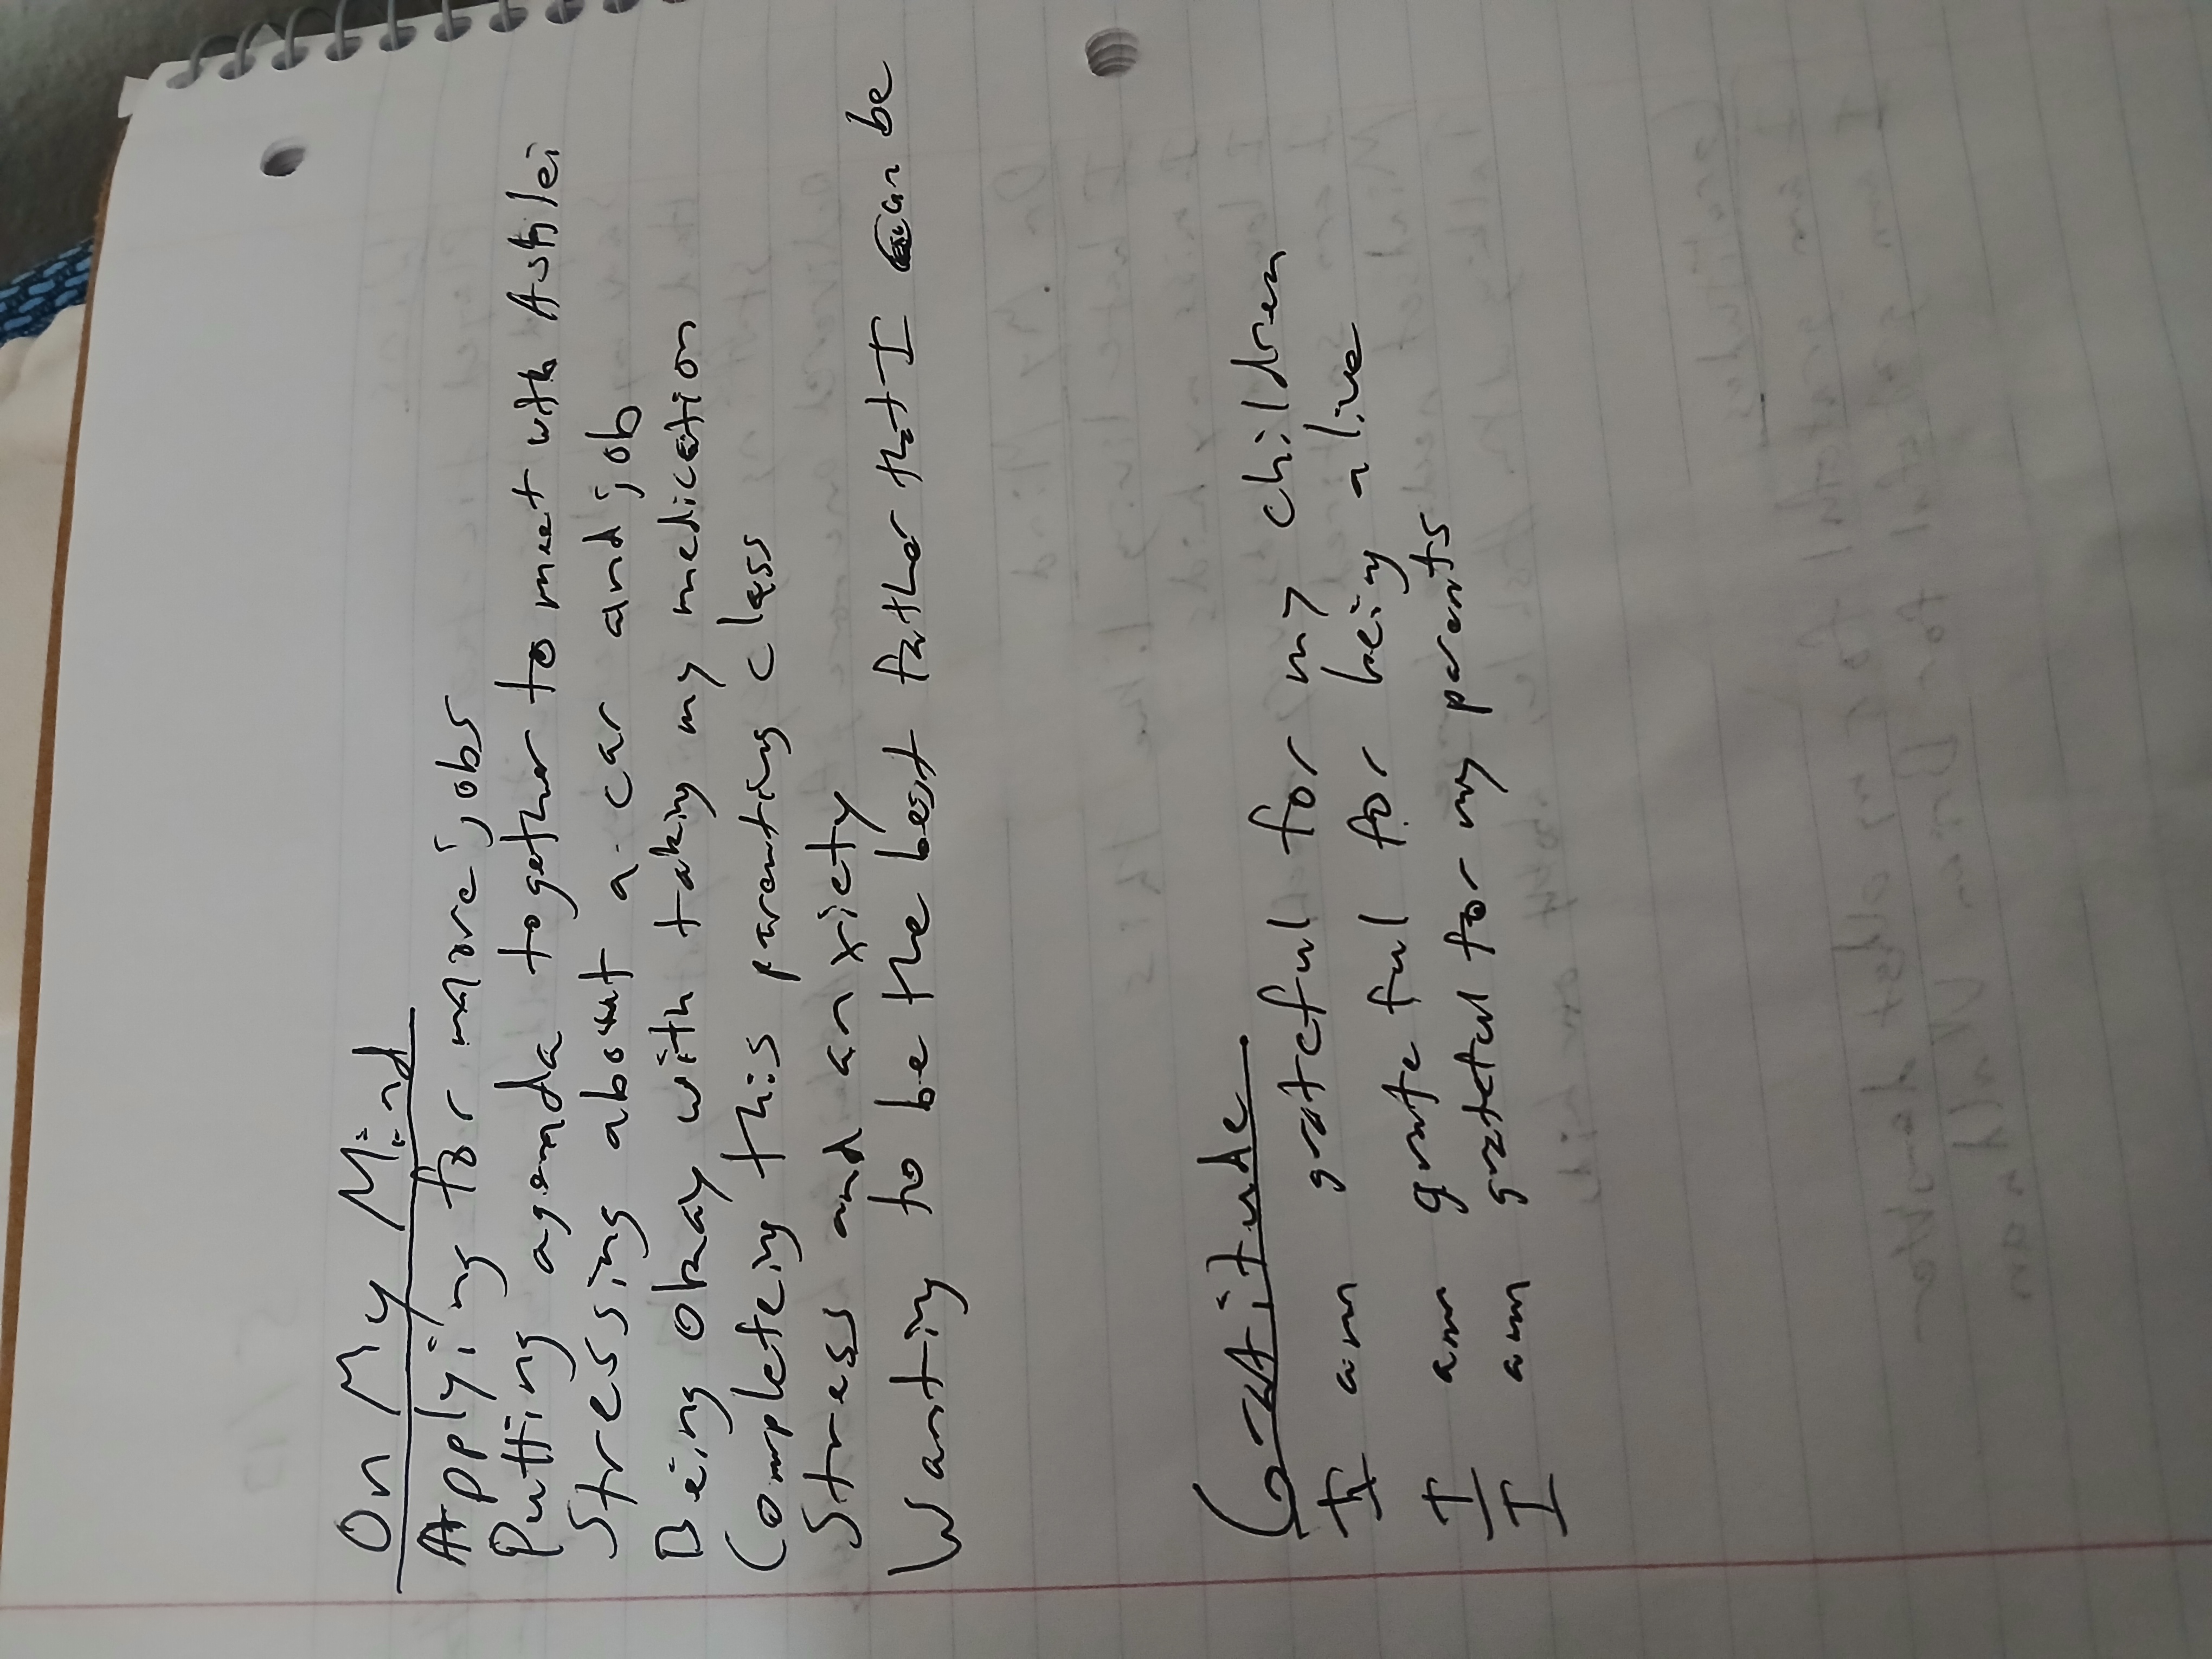 On My Mind
Applying for more jobs
Putting agenda together to meet with Ashlei
Stressing about a car and job
Being okay with taking my medication
Completeing this parenting class
Stress and anxiety
Wanting to be the best father that I can be
Gratitude
I am grateful for my children
I am grateful for being alive
I am grateful for my parents